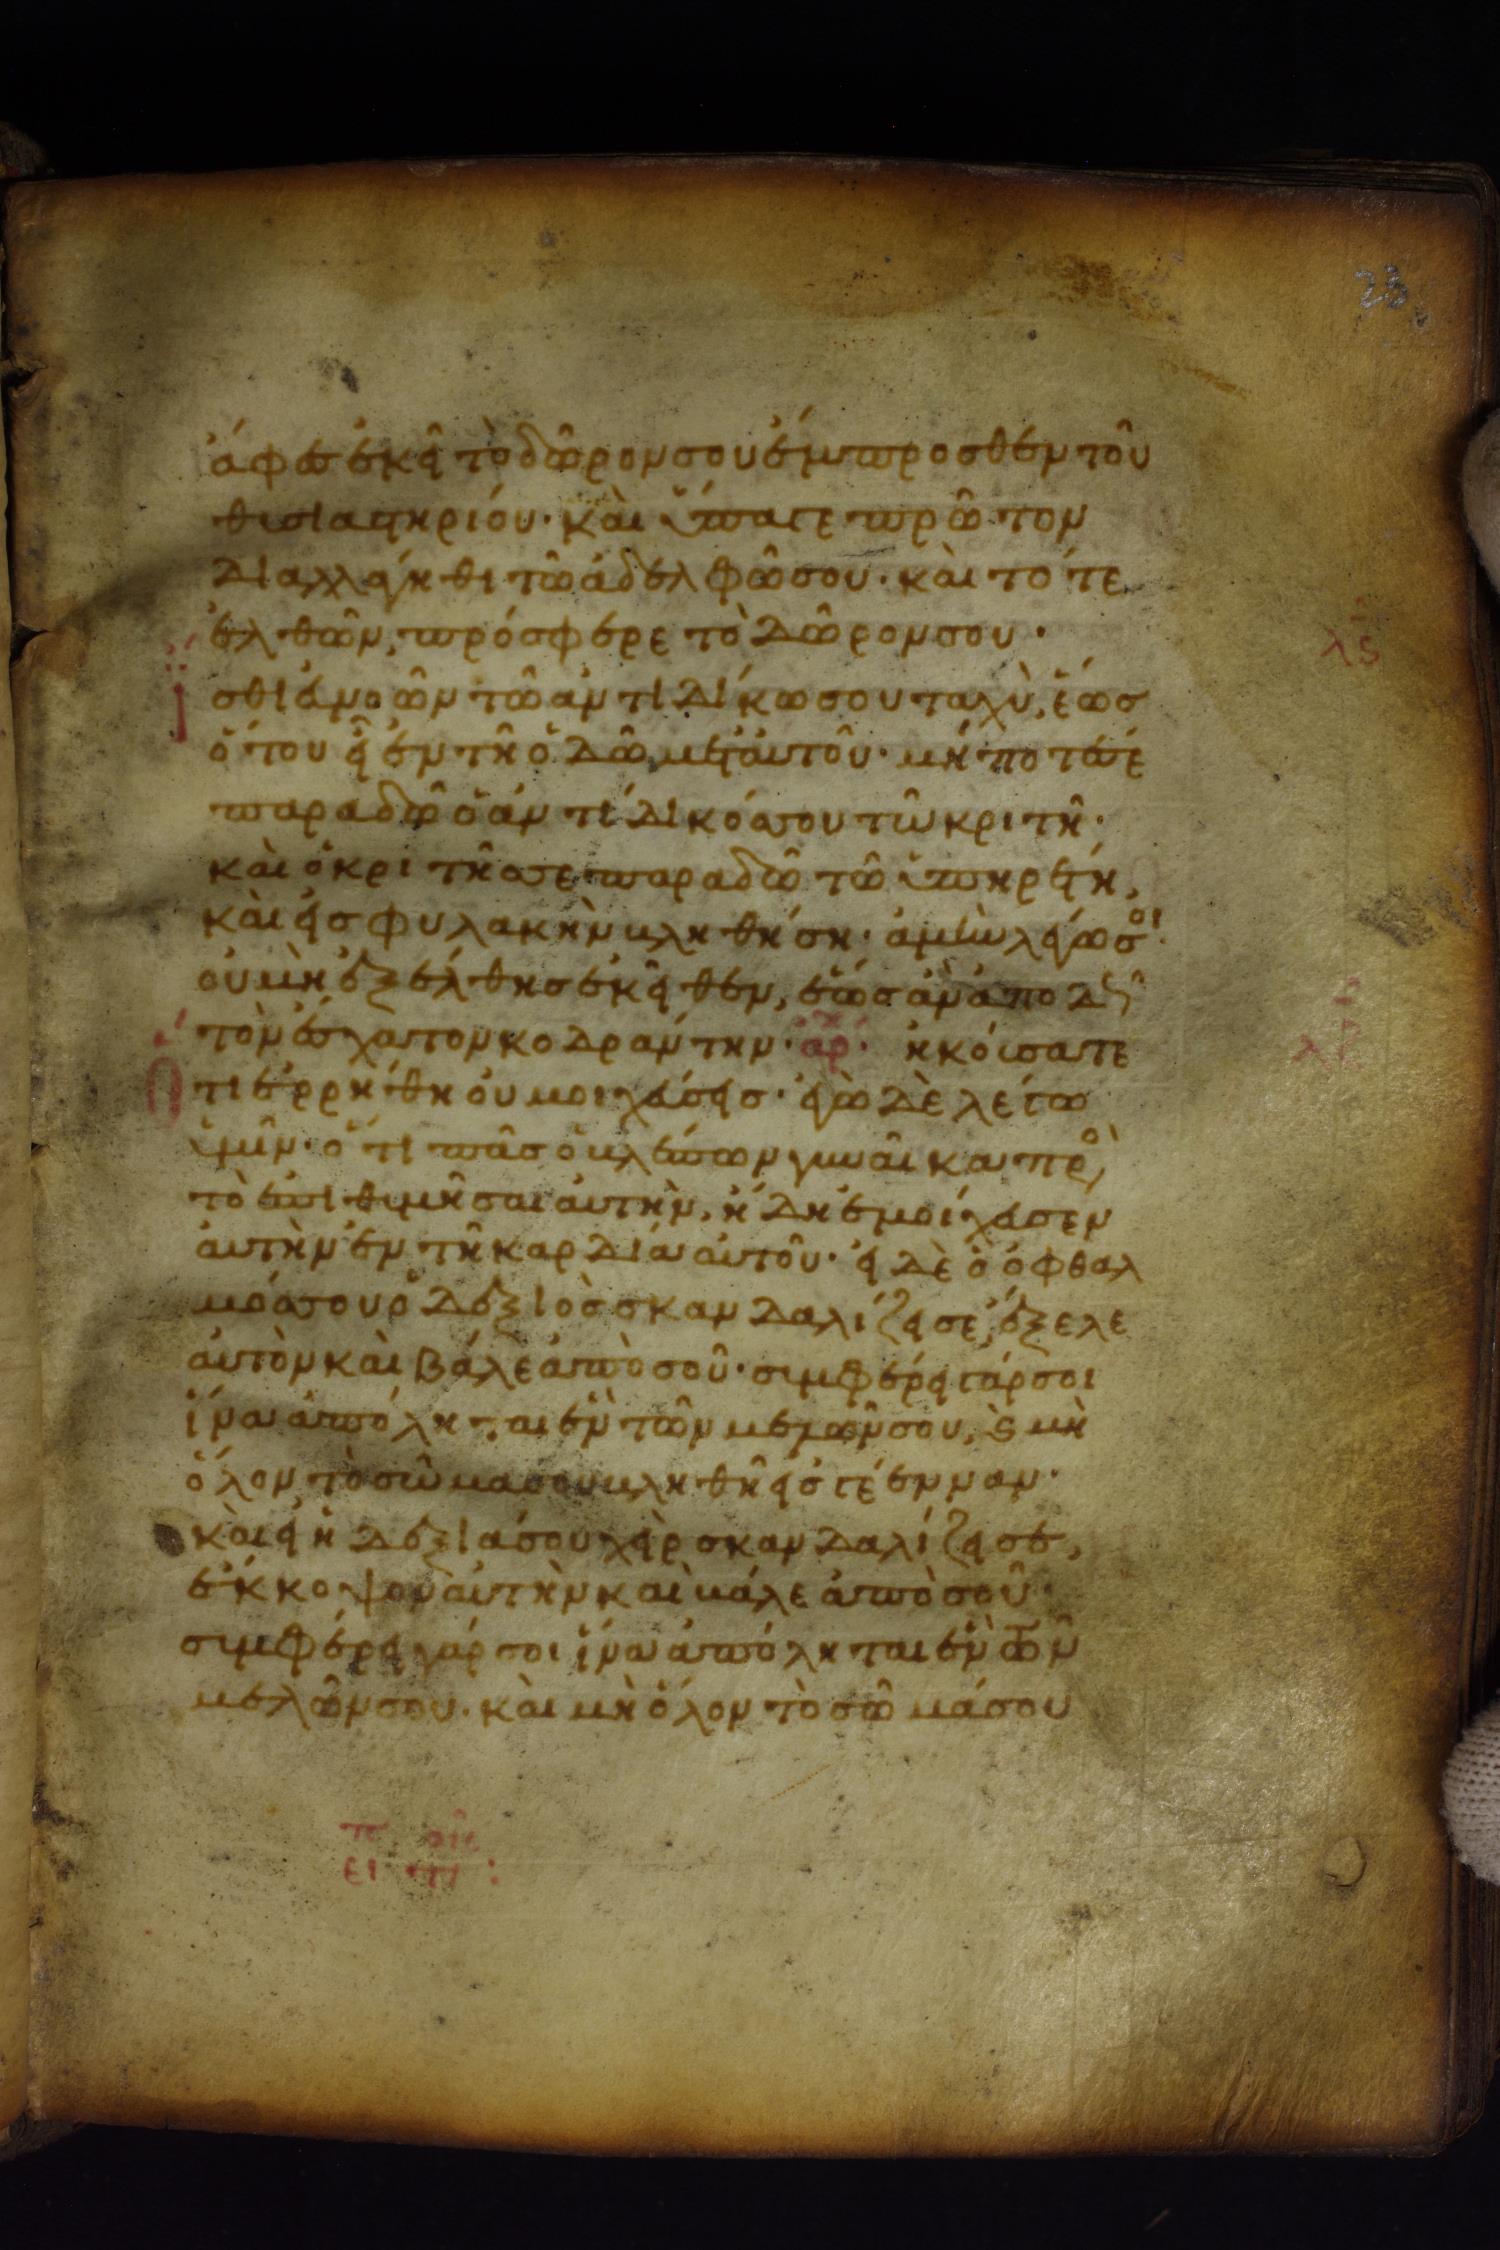 23
ἄφες ἐκεῖ τὸ δῶρον σου ἔμπροσθεν τοῦ
θυσιαστηρίου· καὶ ὕπαγε πρῶτον
διαλλάγηθι τῶ ἀδελφῶ σου· καὶ τότε
ἐλθὼν, πρόσφερε τὸ δῶρον σου·
ϊσθι ἐυνοῶν τῶ ἀντιδίκω σου ταχὺ, ἕως
ὅτου εἶ ἐν τῆ ὁδῶ μετ' ἀυτοῦ· μήποτέ σε
παραδῶ ὁ ἀντίδικός σου τῶ κριτῆ·
καὶ ὁ κριτής σε παραδῶ τῶ ὑπηρέτη,
καὶ εἰς φυλακὴν βληθήση· ἀμὴν λέγω σοι·
οὐ μὴ ἐξέλθης ἐκεῖθεν, ἕως ἂν ἀποδῶς
τὸν ἔσχατον κοδράντην· ἀρχ· ἠκούσατε
ὅτι ἐρρήθη οὐ μοιχεύσεις· ἐγὼ δὲ λέγω
ὑμῖν· ὅτι πᾶς ὁ βλέπων γυναῖκα πρὸ
τὸ ἐπιθυμῆσαι ἀυτὴν, ἤδη ἐμοίχευσεν
ἀυτὴν ἐν τῆ καρδία ἀυτοῦ· εἰ δὲ ὁ ὀφθαλ
μός σου ὁ δεξιὸς σκανδαλίζει σε, ἔξελε
ἀυτὸν καὶ βάλε ἀπὸ σοῦ· συμφέρει γάρ σοι
ἵνα ἀπόληται ἓν τῶν μελῶν σου, ϗ μὴ
ὅλον τὸ σῶμα σου βληθῆ εἰς γέενναν·
καὶ εἰ ἡ δεξιά σου χεὶρ σκανδαλίζει σε,
ἔκκοψον ἀυτὴν καὶ βάλε ἀπὸ σοῦ·
συμφέρει γάρ σοι ἵνα ἀπόληται ἓν τῶν
μελῶν σου· καὶ μὴ ὅλον τὸ σῶμά σου